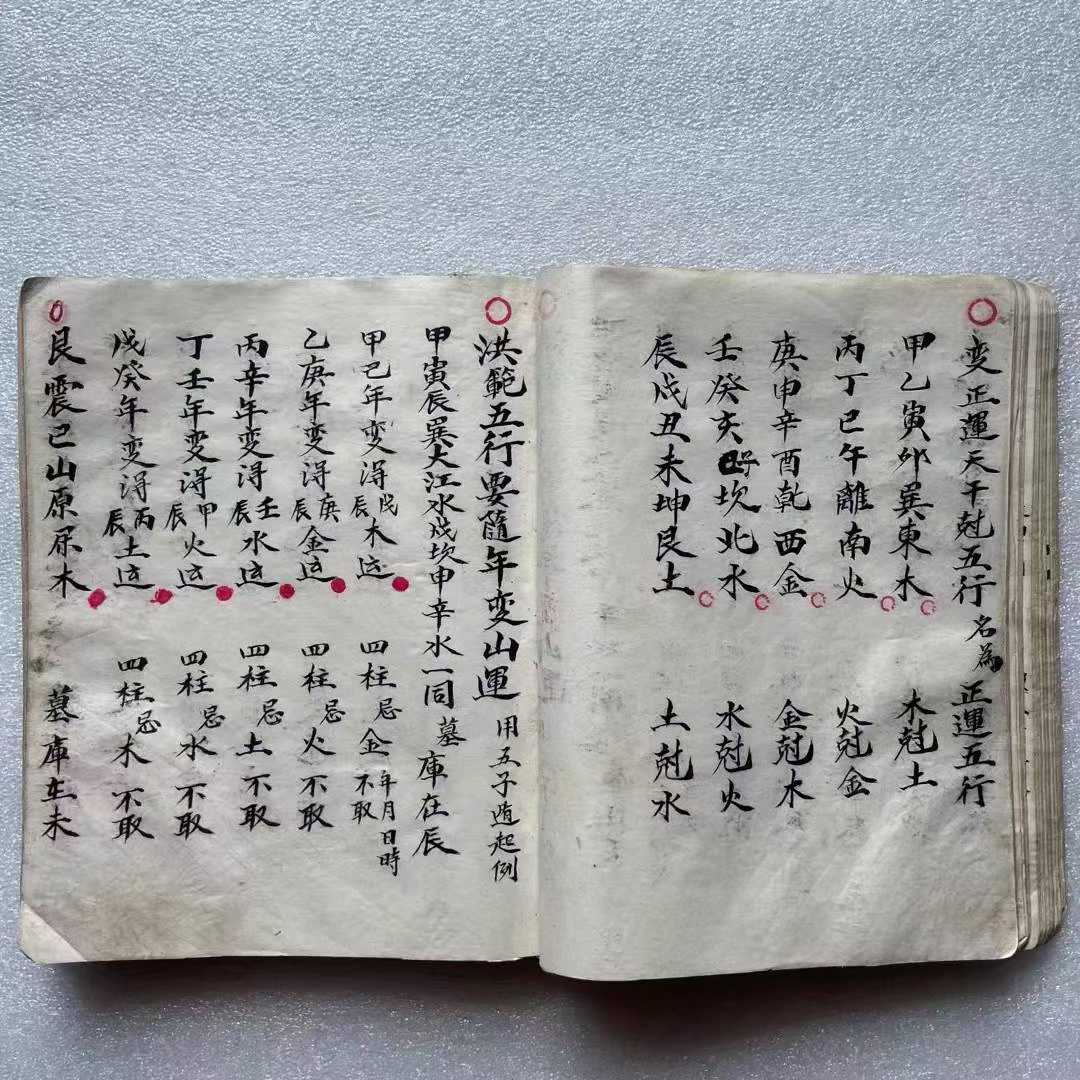 变正運天干尅五行 名為 正運五行
甲乙寅卯巽東木 木尅土
丙丁巳午離南火 火尅金
庚申辛酉乾西金 金尅木
壬癸亥子坎北水 水尅火
辰戌丑未坤艮土 土尅水
洪範五行要隨年变山運 用五子遁起例
甲寅辰巽大江水戌坎申辛水一同 墓庫在辰
甲己年变得戊辰木运 四柱忌金年月日時不取
乙庚年变得庚辰金运 四柱忌火不取
丙辛年变得壬辰水运 四柱忌土不取
丁壬年变得甲辰火运 四柱忌水不取
戊癸年变得丙辰土运 四柱忌木不取
艮震巳山原屬木 墓庫在未